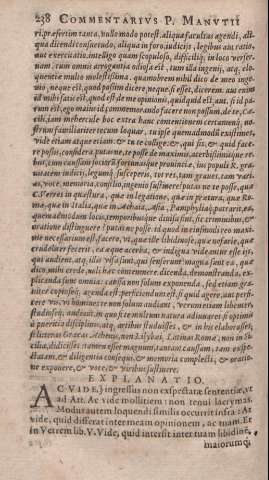 238 COMMENTARIVS P. MANVTII
ri, præsertim tanta, nullo modo potest. aliqua facultas agendi, ali-
qua dicendi consuetudo, aliqua in foro, iudicijs, legibus aut ratio,
aut exercitatio. intelligo quam scopuloso, difficiliq; in loco verser.
nam, cum omnis arrogantia odiosa est, tum illa ingenij, atq; elo-
quentiæ multo molestissima. quamobrem nihil dico de meo inge-
nio, neque est, quod possim dicere, neque, si esset, dicerem. aut enim
id mihi satis est, quod est de me opinionis, quidquid est, aut, si id pa-
rum est, ego maius id, commemorando facere non possum. de te, Cæ-
cili, iam mehercule hoc extra hanc contentionem certamenq; no-
strum familiariter tecum loquar, tu ipse quemadmodum existimes,
vide etiam atque etiam: & tu te collige: &, qui sis, & quid face-
re possis, considera. putasne, te posse de maximis, acerbissimisque re-
bus, cum caussam sociorum, fortunasque prouinciæ, ius populi R. gra-
uitatem iudicij, legumq; susceperis, tot res, tam graues, tam vari-
as, voce, memoria, consilio, ingenio sustinere? putas ne te posse, quæ
C. Verres in quæstura, quæ in legatione, quæ in prætura, quæ Ro-
mæ, quæ in Italia, quæ in Achaia, Asia, Pamphyliaq; patrarit, ea,
quemadmodum locis, temporibusque diuisa sint, sic criminibus, &
oratione distinguere? putasne, posse, id quod in eiusmodi reo maxi-
me necessarium est, facere, vt, quæ ille libidinose, quæ nefarie, quæ
crudeliter fecerit, ea æque acerba, & indigna videantur esse ijs,
qui audient, atq; illis visa sint, qui senserunt? magna sunt ea, quæ
dico, mihi crede. noli hæc contemnere. dicenda, demonstranda, ex-
plicanda sunt omnia: caussa non solum exponenda, sed etiam graui-
ter copioseq; agenda est: perficiendum est, si quid agere, aut perfi-
cere vis, vt homines te non solum audiant, verum etiam libenter,
studioseq; audiant. in quo si te multum natura adiuuaret: si optimis
a pueritia disciplinis, atq; artibus studuisses, & in his elaborasses,
si litteras Græcas Athenis, non Lilybæi, Latinas Romæ, non in Si-
cilia, didicisses: tamen esset magnum, tantam caussam, tam exspe-
ctatam, & diligentia consequi, & memoria complecti, & oratio-
ne exponere, & voce, & viribus sustinere.
EXPLANATIO.
AC VIDE,] ingressus non exspectatæ sententiæ, vt
ad Att. Ac vide mollitiem: non tenui lacrymas.
Modus autem loquendi similis occurrit infra: At
vide, quid differat inter meam opinionem, ac tuam. Et
in Verrem lib. V. Vide, quid intersit inter tuam libidinē,
maiorumq;